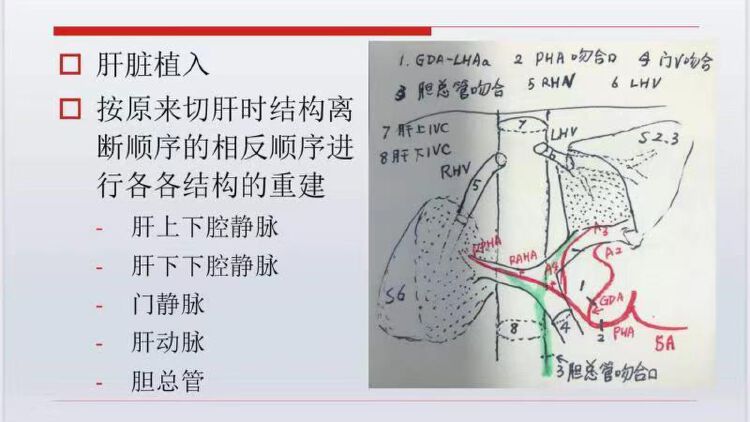 肝脏植入
按原来切肝时结构离
断顺序的相反顺序进
行各各结构的重建
- 肝上下腔静脉
- 肝下下腔静脉
- 门静脉
- 肝动脉
- 胆总管
1. GDA-LHAa 2 PHA吻合口 4 门V吻合
3 胆总管吻合 5 RHV 6 LHV
7 肝上IVC
8 肝下IVC
7
LHV
S2.3
RHV
5
6
RPHA
RAHA
A3
A4
A2
S6
1
GDA
8
4
2
PHA
SA
3 胆总管吻合口